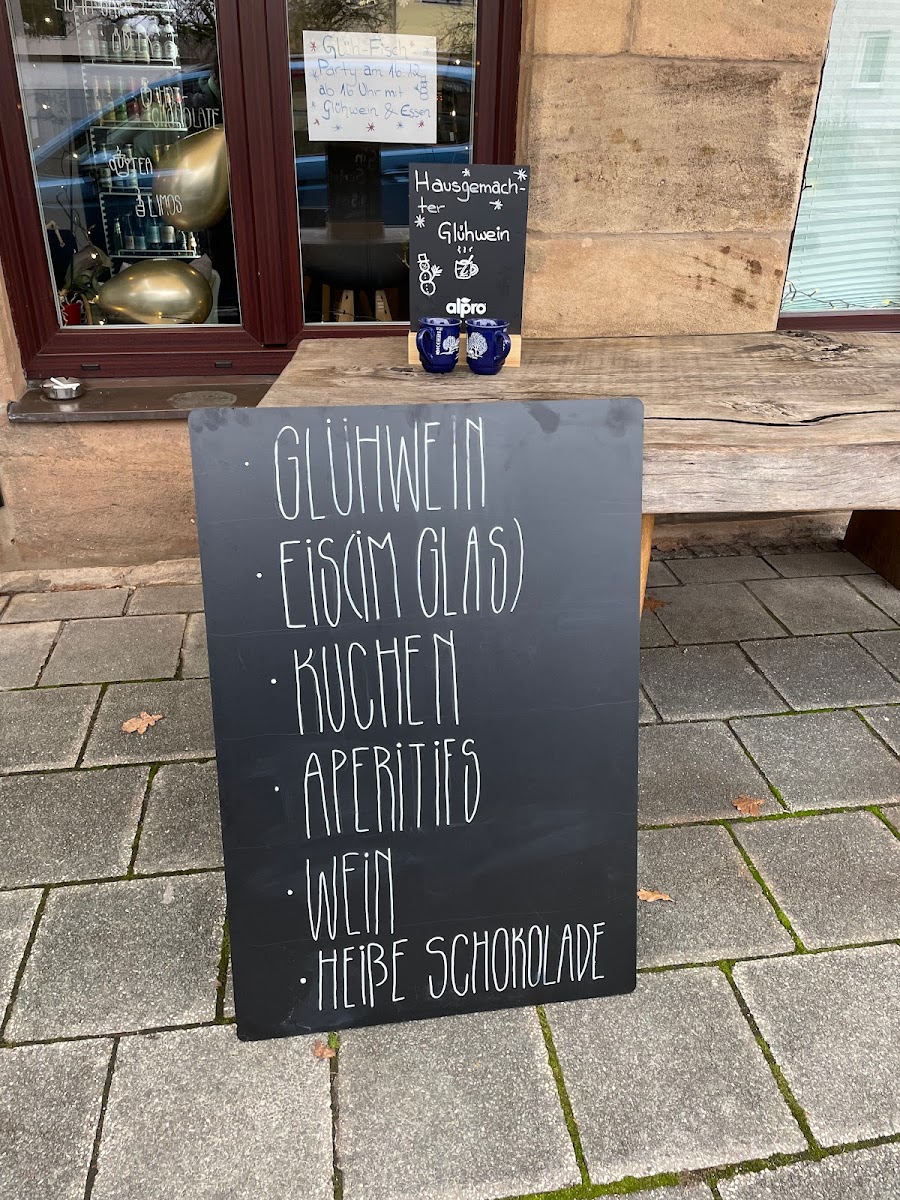 APERO
CHOCOLATE
TEA
LIMOS
Glüh-Fisch
Party am 16.12
ab 16 Uhr mit
Glühwein & Essen
Hausgemach-
ter
Glühwein
alpro
· GLÜHWEIN
· EIS (IM GLAS)
· KUCHEN
· APERITIFS
· WEIN
· HEIßE SCHOKOLADE